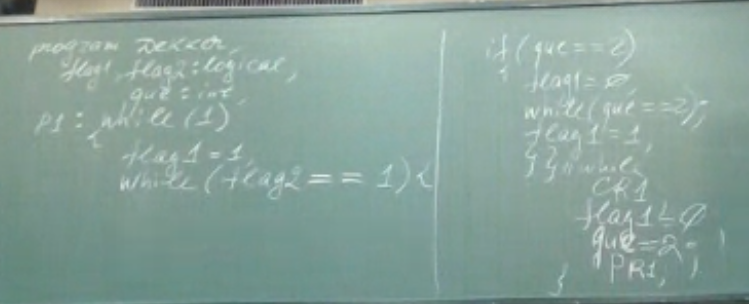 program Dekker,
flag1, flag2 : logical,
que : int,
P1 : while (1)
{
flag1 = 1,
while (flag2 == 1) {
if (que == 2)
{
flag1 = ∅,
while (que == 2);
flag1 = 1,
} } // while
CR1
flag1 = ∅
que = 2;
PR1;
}